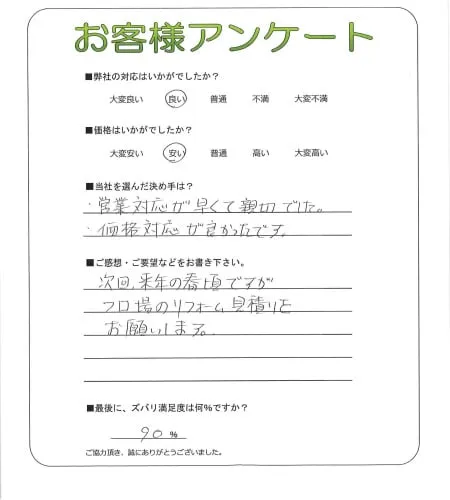 お客様アンケート
■弊社の対応はいかがでしたか？
大変良い 良い 普通 不満 大変不満
■価格はいかがでしたか？
大変安い 安い 普通 高い 大変高い
■当社を選んだ決め手は？
・営業対応が早くて親切でした。
・価格対応が良かったです。
■ご感想・ご要望などをお書き下さい。
次回、来年の春頃ですが
フロ場のリフォーム見積りを
お願いします。
■最後に、ズバリ満足度は何%ですか？
90 %
ご協力頂き、誠にありがとうございました。